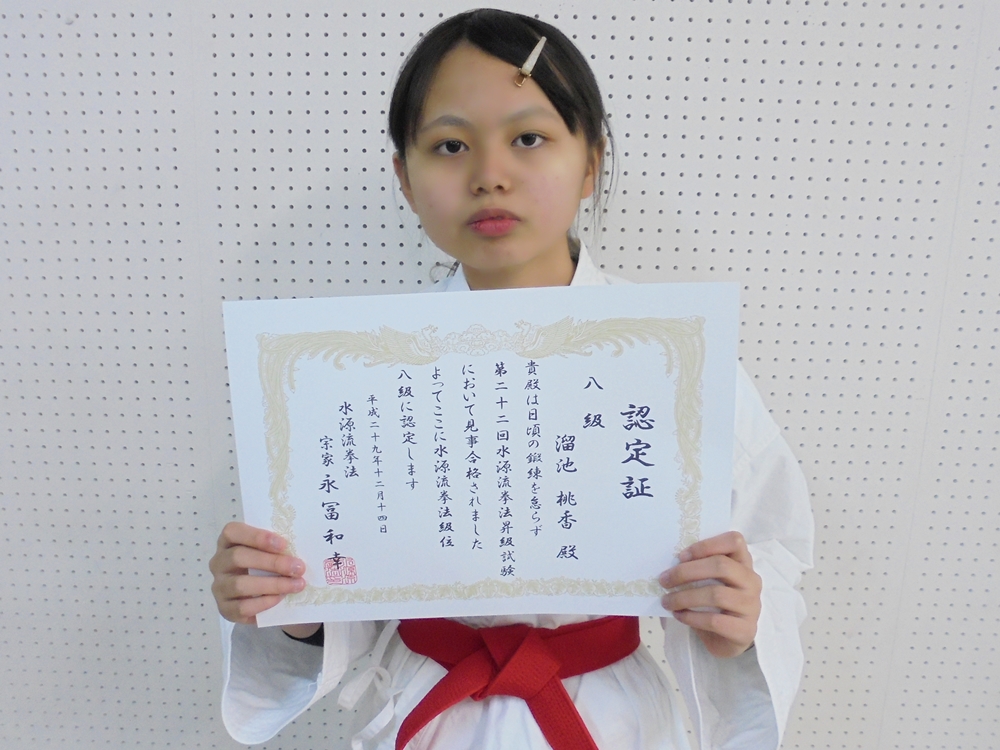 認定証
八級
溜池 桃香 殿
貴殿は日頃の鍛練を怠らず
第二十二回水源流拳法昇級試験
において見事合格されました
よってここに水源流拳法級位
八級に認定します
平成二十九年十二月十四日
水源流拳法
宗家 永冨和幸